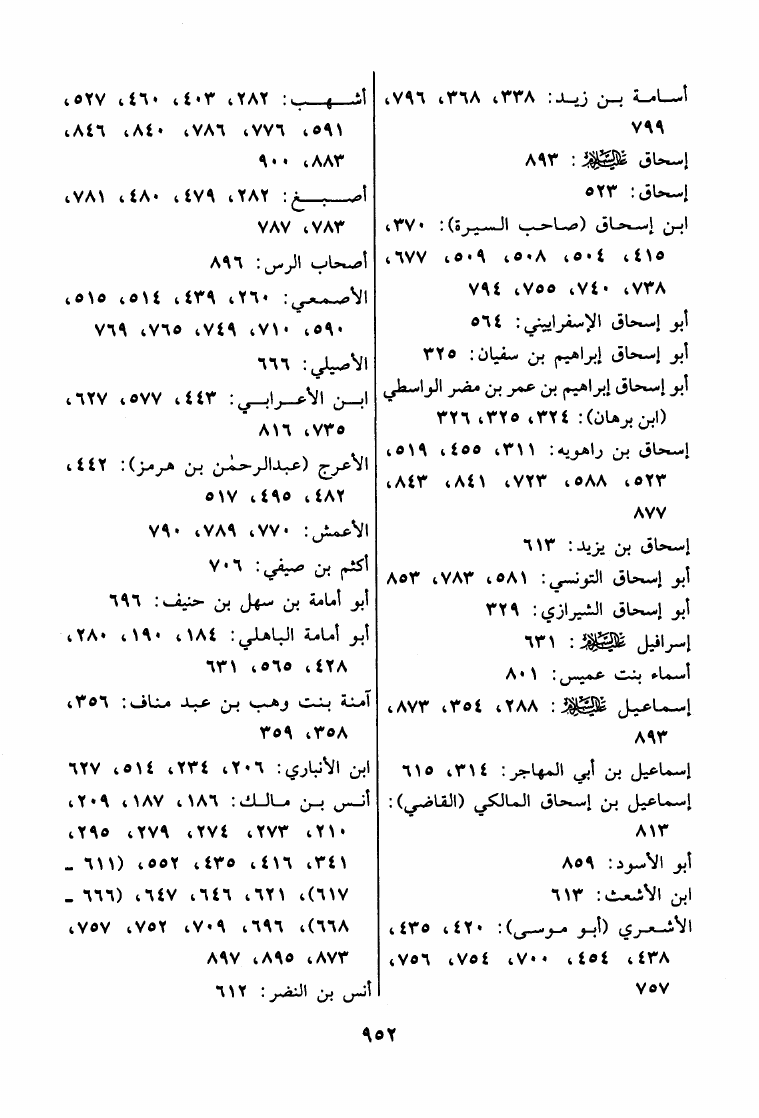 أسامة بن زيد: ٣٣٨، ٣٦٨، ٧٩٦،
٧٩٩
إسحاق عليه السلام: ٨٩٣
إسحاق: ٥٢٣
ابن إسحاق (صاحب السيرة): ٣٧٠،
٤١٥، ٥٠٤، ٥٠٨، ٥٠٩، ٦٧٧،
٧٣٨، ٧٤٠، ٧٥٥، ٧٩٤
أبو إسحاق الإسفراييني: ٥٦٤
أبو إسحاق إبراهيم بن سفيان: ٣٢٥
أبو إسحاق إبراهيم بن عمر بن مضر الواسطي
(ابن برهان): ٣٢٤، ٣٢٥، ٣٢٦
إسحاق بن راهويه: ٣١١، ٤٥٥، ٥١٩،
٥٢٣، ٥٨٨، ٧٢٣، ٨٤١، ٨٤٣،
٨٧٧
إسحاق بن يزيد: ٦١٣
أبو إسحاق التونسي: ٥٨١، ٧٨٣، ٨٥٣
أبو إسحاق الشيرازي: ٣٢٩
إسرافيل عليه السلام: ٦٣١
أسماء بنت عميس: ٨٠١
إسماعيل عليه السلام: ٢٨٨، ٣٥٤، ٨٧٣،
٨٩٣
إسماعيل بن أبي المهاجر: ٣١٤، ٦١٥
إسماعيل بن إسحاق المالكي (القاضي):
٨١٣
أبو الأسود: ٨٥٩
ابن الأشعث: ٦١٣
الأشعري (أبو موسى): ٤٢٠، ٤٣٥،
٤٣٨، ٤٥٤، ٧٠٠، ٧٥٤، ٧٥٦،
٧٥٧
أشهب: ٢٨٢، ٤٠٣، ٤٦٠، ٥٢٧،
٥٩١، ٧٧٦، ٧٨٦، ٨٤٠، ٨٤٦،
٨٨٣، ٩٠٠
أصبغ: ٢٨٢، ٤٧٩، ٤٨٠، ٧٨١،
٧٨٣، ٧٨٧
أصحاب الرس: ٨٩٦
الأصمعي: ٢٦٠، ٤٣٩، ٥١٤، ٥١٥،
٥٩٠، ٧١٠، ٧٤٩، ٧٦٥، ٧٦٩
الأصيلي: ٦٦٦
ابن الأعرابي: ٤٤٣، ٥٧٧، ٦٢٧،
٧٣٥، ٨١٦
الأعرج (عبدالرحمٰن بن هرمز): ٤٤٢،
٤٨٢، ٤٩٥، ٥١٧
الأعمش: ٧٧٠، ٧٨٩، ٧٩٠
أكثم بن صيفي: ٧٠٦
أبو أمامة بن سهل بن حنيف: ٦٩٦
أبو أمامة الباهلي: ١٨٤، ١٩٠، ٢٨٠،
٤٢٨، ٥٦٥، ٦٣١
آمنة بنت وهب بن عبد مناف: ٣٥٦،
٣٥٨، ٣٥٩
ابن الأنباري: ٢٠٦، ٢٣٤، ٥١٤، ٦٢٧
أنس بن مالك: ١٨٦، ١٨٧، ٢٠٩،
٢١٠، ٢٧٣، ٢٧٤، ٢٧٩، ٢٩٥،
٣٤١، ٤١٦، ٤٣٥، ٥٥٢، (٦١١ -
٦١٧)، ٦٢١، ٦٤٦، ٦٤٧، (٦٦٦ -
٦٦٨)، ٦٩٦، ٧٠٩، ٧٥٢، ٧٥٧،
٨٧٣، ٨٩٥، ٨٩٧
أنس بن النضر: ٦١٢
٩٥٢